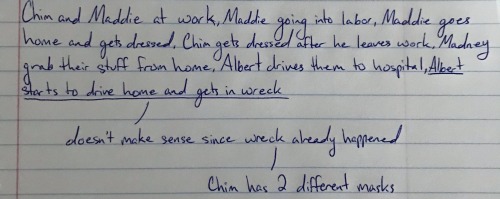 Chim and Maddie at work, Maddie going into labor, Maddie goes
home and gets dressed, Chim gets dressed after he leaves work, Madney
grab their stuff from home, Albert drives them to hospital, Albert
starts to drive home and gets in wreck
doesn't make sense since wreck already happened
Chim has 2 different masks